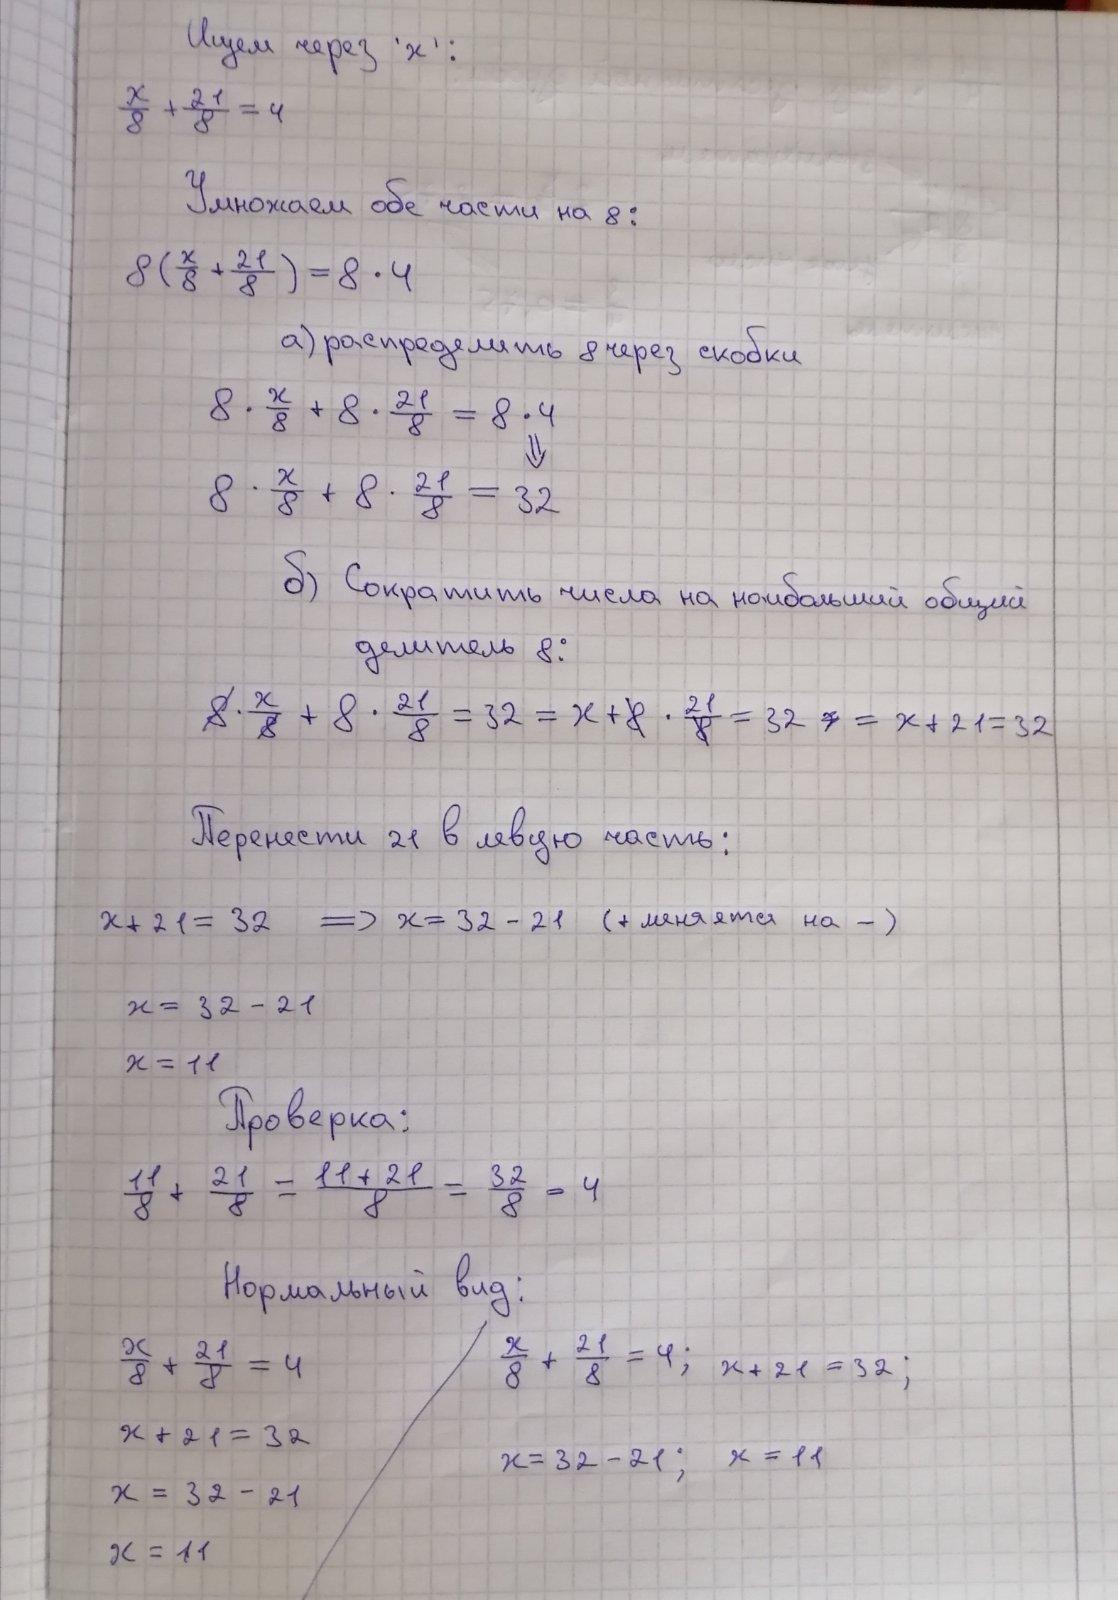 Ищем через 'x':
x/8 + 21/8 = 4
Умножаем обе части на 8:
8(x/8 + 21/8) = 8 · 4
а) распределить 8 через скобки
8 · x/8 + 8 · 21/8 = 8 · 4
⇓
8 · x/8 + 8 · 21/8 = 32
б) Сократить числа на наибольший общий
делитель 8:
8 · x/8 + 8 · 21/8 = 32 = x + 8 · 21/8 = 32 = x + 21 = 32
Перенести 21 в левую часть:
x + 21 = 32 ⇒ x = 32 - 21 (+ меняется на -)
x = 32 - 21
x = 11
Проверка:
11/8 + 21/8 = 11 + 21/8 = 32/8 = 4
Нормальный вид:
x/8 + 21/8 = 4
x + 21 = 32
x = 32 - 21
x = 11
x/8 + 21/8 = 4; x + 21 = 32;
x = 32 - 21; x = 11